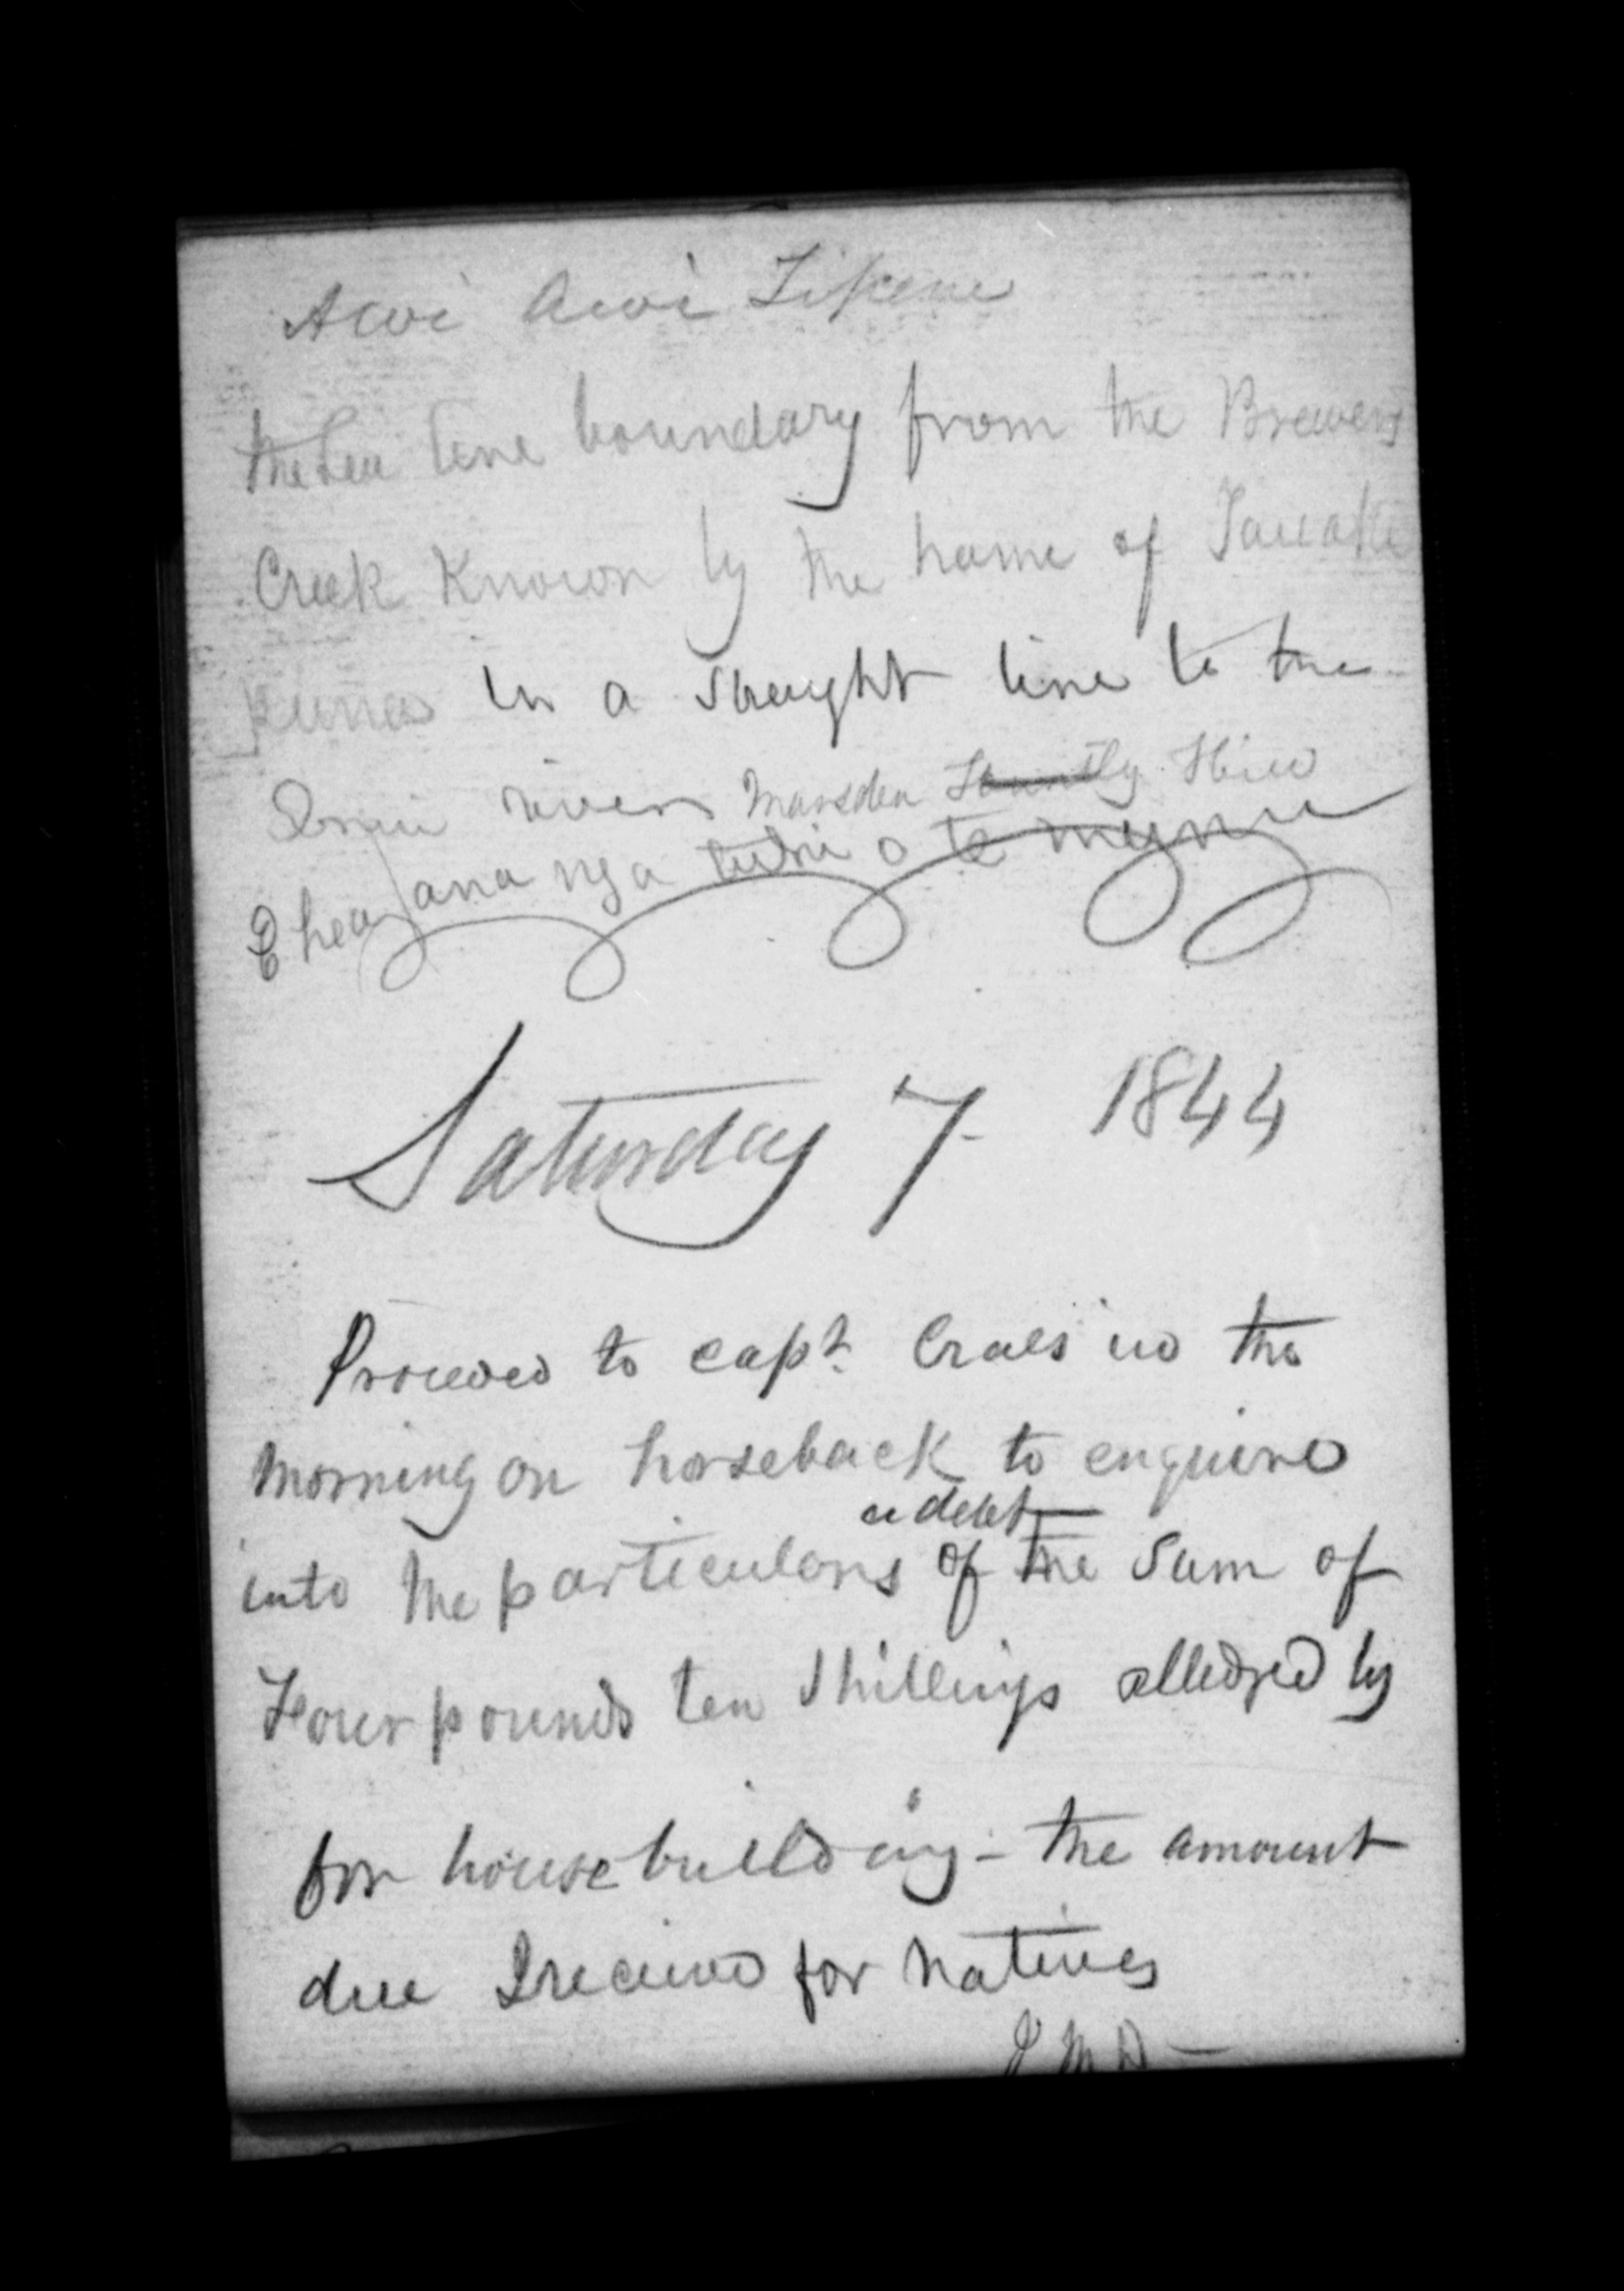 Awi Awi
line boundary from the Brewers
Creek Known by the name of
in a straight line to the
river Marsden
E hea ana nga o te
Saturday 7 1844
Proceed to capt. Craes in the
morning on horseback to enquire
a debt
into the particulars of the Sum of
Four pounds ten Shillings alledged by
for housebuilding - the amount
due I receive for natives